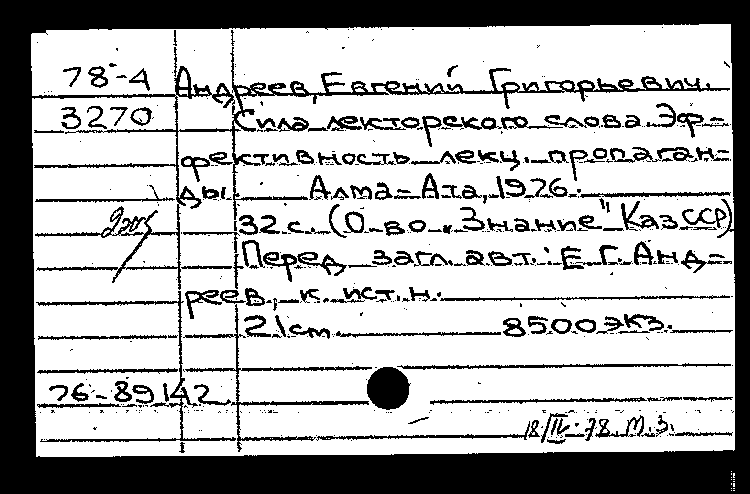 78-4 Андреев, Евгений Григорьевич.
3270 Сила лекторского слова. Эф-
фективность лекц. пропаган-
ды. Алма-Ата, 1976.
32 с. (О-во „Знание" КазССР)
Перед загл. авт.: Е. Г. Анд-
реев, к. ист. н.
21 см. 8500 экз.
76-89142
18/IV-78. М.З.